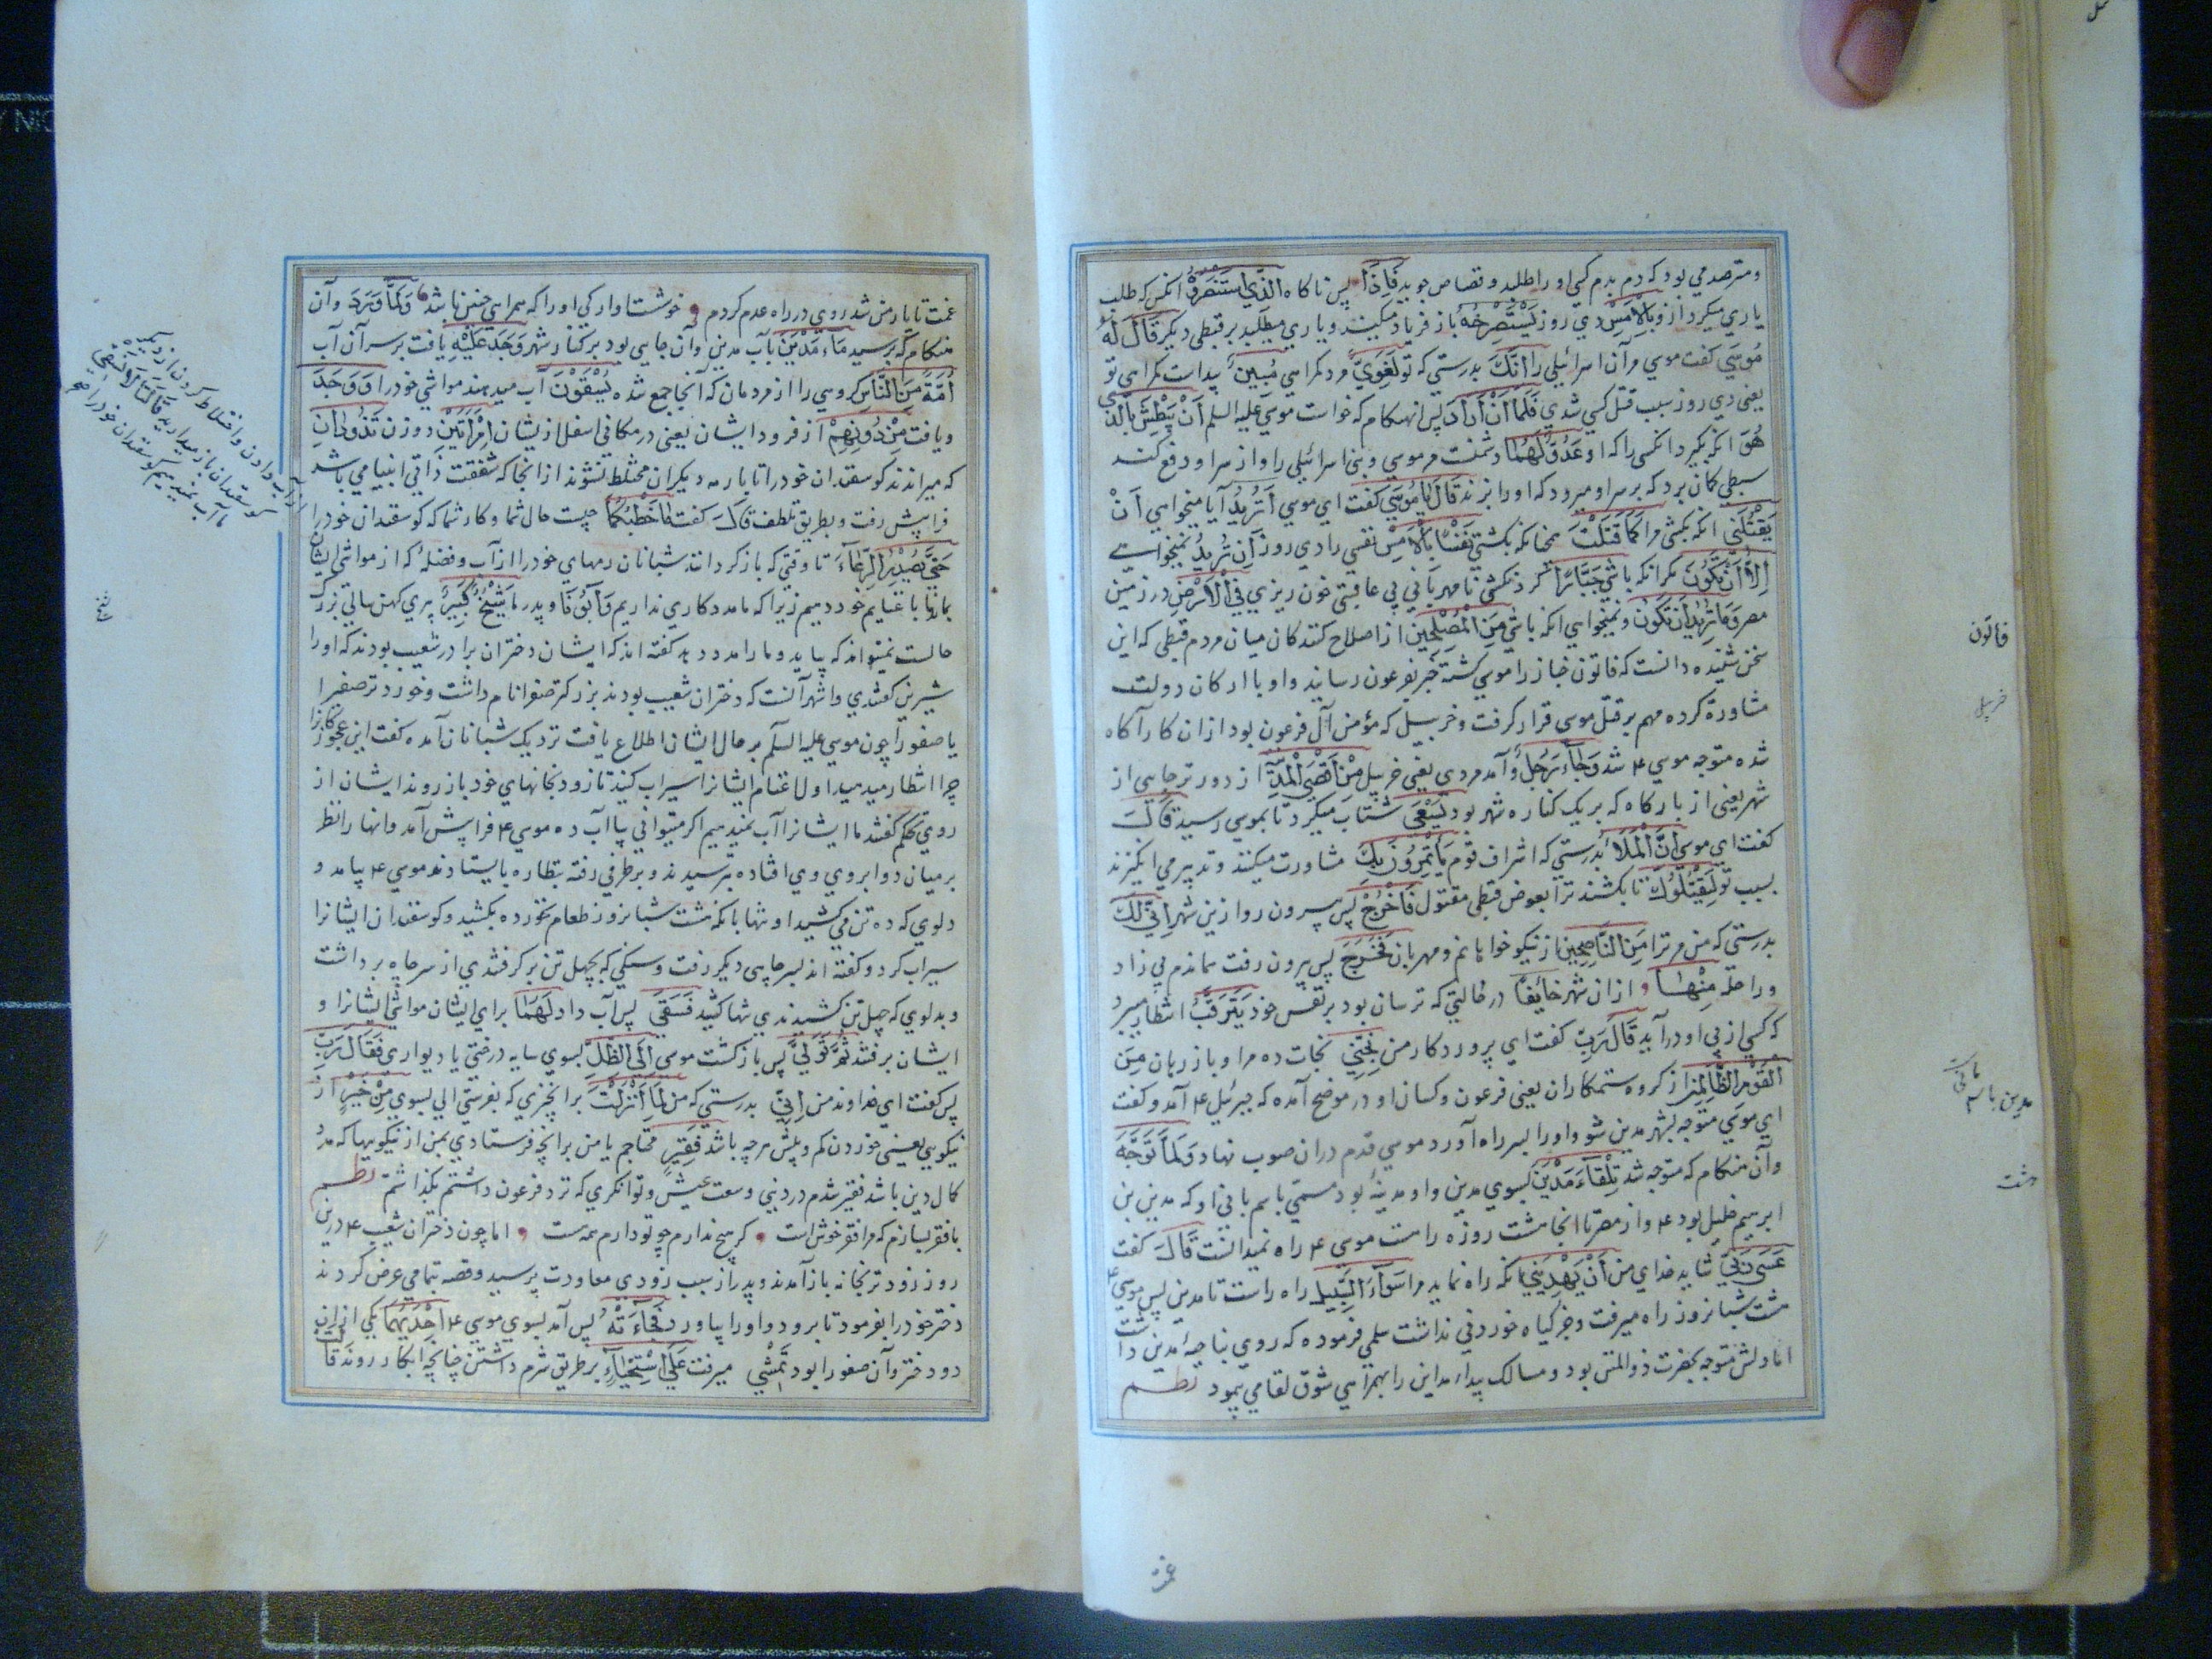 ومترصد می بود که دم بدم کسی اورا طلبد وقصاص جوید فَاِذَا پس ناکاه الَّذِي اسْتَنْصَرَهُ انکس که طلب
یاری میکرد ازو بِالْاَمْسِ دی روز یَسْتَصْرِخُهُ باز فریاد میکند ویاری میطلبد بر قبطی دیکر قَالَ لَهُ
مُوسَى کفت موسی مر آن اسرائیلی را اِنَّكَ بدرستی که تو لَغَوِيٌّ مرد کمراهی مُبِينٌ پیداست کمراهی تو
یعنی دی روز سبب قتل کسی شدی فَلَمَّا اَنْ اَرَادَ پس انهنکام که خواست موسی علیه السلم اَنْ یَبْطِشَ بِالَّذِي
هُوَ انکه بکیرد انکس را که او عَدُوٌّ لَهُمَا دشمنست مر موسی وبنی اسرائیلی را واز سر او دفع کند
سبطی کمان برد که بر سر او میرود که اورا بزند قَالَ یَا مُوسَى کفت ای موسی اَتُرِیدُ آیا میخواهی اَنْ
تَقْتُلَنِي انکه بکشی مرا كَمَا قَتَلْتَ همچنانکه بکشتی نَفْسًا بِالْاَمْسِ نفسی را دی روز اِنْ تُرِیدُ نمیخواهی
اِلَّا اَنْ تَكُونَ مکر انکه باشی جَبَّارًا کردنکشی نامهربانی بی عاقبتی خون ریزی فِي الْاَرْضِ در زمین
مصر وَمَا تُرِیدُ اَنْ تَكُونَ ونمیخواهی انکه باشی مِنَ الْمُصْلِحِینَ از اصلاح کنندکان میان مردم قبطی که این
سخن شنیده دانست که فاتون خباز را موسی کشته خبر بفرعون رسانید واو با ارکان دولت
مشاورة کرده مهم بر قتل موسی قرار کرفت وخربیل که مؤمن آل فرعون بود ازان کار آکاه
شده متوجه موسی ع شد وَجَاءَ رَجُلٌ وآمد مردی یعنی خربیل مِنْ اَقْصَى الْمَدِینَةِ از دورتر جایی از
شهر یعنی از بارکاه که بر یک کناره شهر بود یَسْعَى شتاب میکرد تا بموسی رسید قَالَ
کفت ای موسی اِنَّ الْمَلَاَ بدرستی که اشراف قوم یَأْتَمِرُونَ بِكَ مشاورت میکنند وتدبیر می انکیزند
بسبب تو لِیَقْتُلُوكَ تا بکشند ترا بعوض قبطی مقتول فَاخْرُجْ پس بیرون رو ازین شهر اِنِّي لَكَ
بدرستی که من مر ترا مِنَ النَّاصِحِینَ از نیکو خواهانم ومهربان فَخَرَجَ پس بیرون رفت هماندم بی زاد
وراحله مِنْهَا ازان شهر خَائِفًا در حالتی که ترسان بود بر نفس خود یَتَرَقَّبُ انتظار میبرد
که کسی از پی او درآید قَالَ رَبِّ کفت ای پروردکار من نَجِّنِي نجات ده مرا وباز رهان مِنَ
الْقَوْمِ الظَّالِمِینَ از کروه ستمکاران یعنی فرعون وکسان او در موضح آمده که جبرئیل ع آمد وکفت
ای موسی متوجه بشهر مدین شو واورا بسر راه آورد موسی قدم دران صوب نهاد وَلَمَّا تَوَجَّهَ
وآن هنکام که متوجه شد تِلْقَاءَ مَدْیَنَ بسوی مدین واو مدینهٔ بود مسمی باسم بانی او که مدین بن
ابرهیم خلیل بود ع واز مصر تا انجا هشت روزه راهست موسی ع راه نمیدانست قَالَ کفت
عَسَى رَبِّي شاید خدای من اَنْ یَهْدِیَنِي انکه راه نماید مرا سَوَاءَ السَّبِیلِ راه راست تا مدین پس موسی ع
هشت شبانروز راه میرفت وجز کیاه خوردنی نداشت سلمی فرموده که روی بناحیهٔ مدین داشت
اما دلش متوجه بحضرت ذوالمنن بود ومسالک بیداء مداین را بهمراهی شوق لقا می پیمود نظم
فاتون
خربیل
هشت
غمت
غمت تا یار من شد روی در راه عدم کردم خوشست اوارکی اورا که همراهی چنین باشد وَلَمَّا وَرَدَ وآن
هنکام که برسید مَاءَ مَدْیَنَ بآب مدین وآن چاهی بود بر کنار شهر وَجَدَ عَلَیْهِ یافت بر سر آن آب
اُمَّةً مِنَ النَّاسِ کروهی را از مردمان که آنجا جمع شده یَسْقُونَ آب میدهند مواشی خودرا وَوَجَدَ
ویافت مِنْ دُونِهِمْ از فرود ایشان یعنی در مکانی اسفل ازیشان امْرَأَتَیْنِ دو زن تَذُودَانِ
که میراندند کوسفندان خودرا تا با رمه دیکران مختلط نشوند ازانجا که شفقت ذاتی انبیا می باشد
فراپیش رفت وبطریق تلطف قَالَ کفت مَا خَطْبُكُمَا چیست حال شما وکار شما که کوسفندان خودرا
حَتَّى یُصْدِرَ الرِّعَاءُ تا وقتی که باز کردانند شبانان رمهای خودرا از آب وفضلهٔ که از مواشی ایشان
بماند با غنایم خود دهیم زیرا که ما مددکاری نداریم وَاَبُونَا وپدر ما شَیْخٌ كَبِیرٌ پیری کهن سالی بزرک
حالست نمیتواند که بیاید ومارا مدد دهد کفته اند که ایشان دختران برادر شعیب بودند که اورا
شیرین کفتندی واشهر آنست که دختران شعیب بودند بزرکتر صفورا نام داشت وخوردتر صفیرا
یا صفورا چون موسی علیه السلم بر حال ایشان اطلاع یافت نزدیک شبانان آمده کفت این عجوزکانرا
چرا انتظار میدهید اول اغنام ایشانرا سیراب کنید تا زود بخانهای خود باز روند ایشان از
روی تحکم کفتند ما ایشانرا آب نمیدهیم اکر میتوانی بیا آب ده موسی ع فراپیش آمد وانها را نظر
بر میان دو ابروی وی افتاده بترسیدند وبر طرفی رفته بنظاره بایستادند موسی ع بیامد و
دلوی که ده تن می کشید او تنها بانکه هشت شبانروز طعام نخورده بکشید وکوسفندان ایشانرا
سیراب کرد وکفته اند بسر چاهی دیکر رفت وسنکی که بچهل تن بر کرفتندی از سر چاه برداشت
وبدلوی که چهل تن کشیدندی تنها کشید فَسَقَى پس آب داد لَهُمَا برای ایشان مواشی ایشانرا و
ایشان برفتند ثُمَّ تَوَلَّى پس باز کشت موسی اِلَى الظِّلِّ بسوی سایه درختی یا دیواری فَقَالَ رَبِّ
پس کفت ای خداوند من اِنِّي بدرستی که من لِمَا اَنْزَلْتَ برانچیزی که بفرستی اِلَيَّ بسوی من مِنْ خَیْرٍ از
نیکویی یعنی خوردن کم وبیش هرچه باشد فَقِیرٌ محتاجم یا من برانچه فرستادی بمن از نیکوییها که مدد
کمال دین باشد فقیر شدم در دنیی وسعت عیش وتوانکری که نزد فرعون داشتم بکذاشتم نظم
با فقر بسازم که مرا فقر خوش است کر هیچ ندارم چو تو دارم همه هست اما چون دختران شعیب ع درین
روز زودتر بخانه باز آمدند وپدر از سبب زودی معاودت پرسید وقصه بتمامی عرض کردند
دختر خودرا بفرمود تا برود واورا بیاورد فَجَاءَتْهُ پس آمد بسوی موسی ع اِحْدَیهُمَا یکی ازان
دو دختر وآن صفورا بود تَمْشِي میرفت عَلَى اسْتِحْیَاءٍ بر طریق شرم داشتن چنانچه ابکار روند قَالَتْ
از آب دادن واختلاط کردن از دیکر
کوسفندان باز میدارید قَالَتَا لَا نَسْقِي
ما آب نمیدهیم کوسفندان خودرا